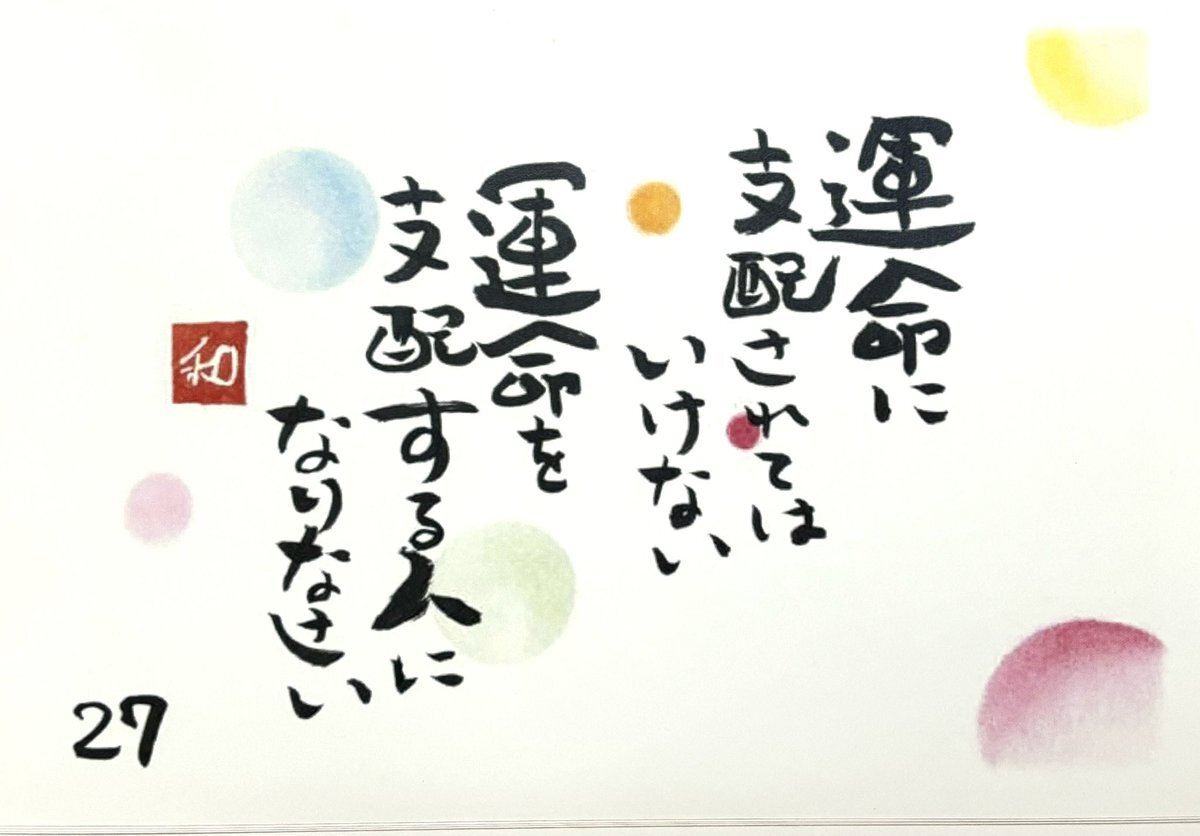 運命に
支配されては
いけない
運命を
支配する人に
なりなさい
和
27